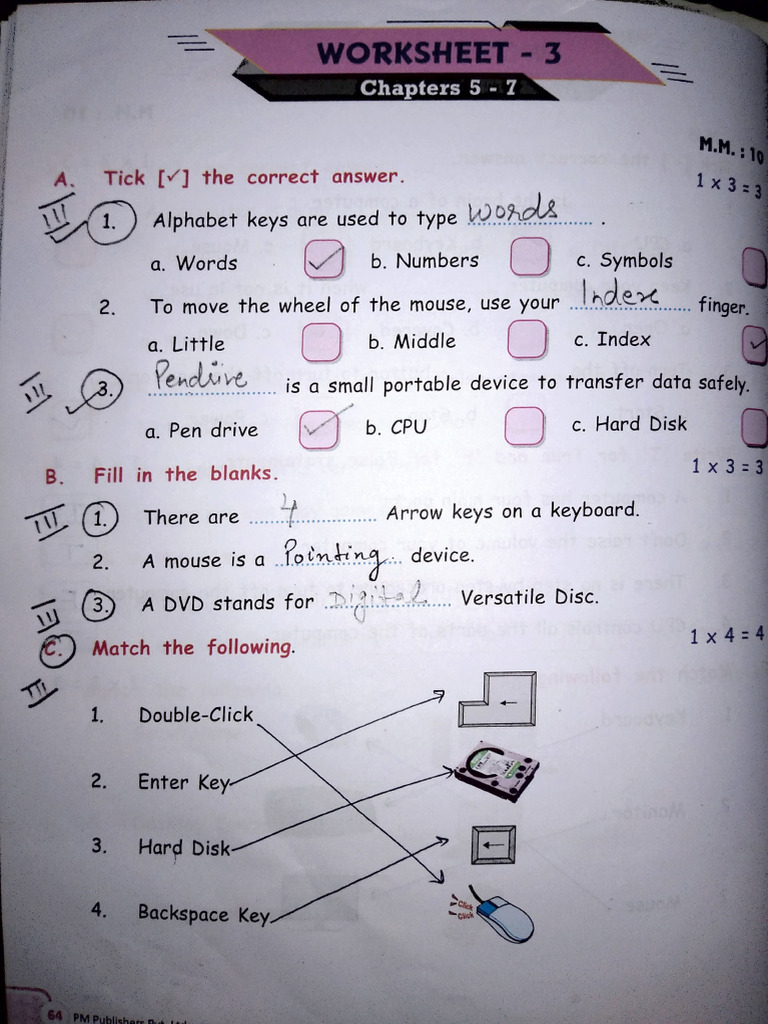 WORKSHEET - 3
Chapters 5 - 7
M.M. : 10
A. Tick [✓] the correct answer. 1 x 3 = 3
III 1. Alphabet keys are used to type words .
a. Words ✓ b. Numbers c. Symbols
2. To move the wheel of the mouse, use your Index finger.
a. Little b. Middle c. Index ✓
III 3. Pendrive is a small portable device to transfer data safely.
a. Pen drive ✓ b. CPU c. Hard Disk
B. Fill in the blanks. 1 x 3 = 3
III 1. There are 4 Arrow keys on a keyboard.
2. A mouse is a Pointing device.
III 3. A DVD stands for Digital Versatile Disc.
C. Match the following. 1 x 4 = 4
III
1. Double-Click
2. Enter Key
3. Hard Disk
4. Backspace Key
Click
Click
64 PM Publishers Pvt. Ltd.